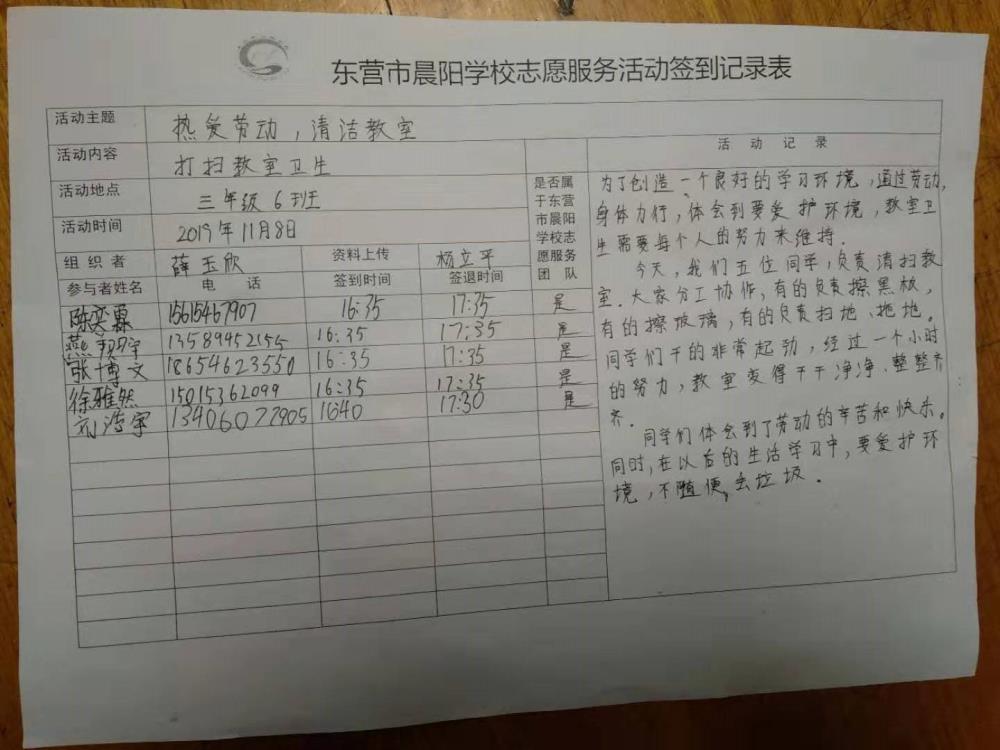 东营市晨阳学校志愿服务活动签到记录表
活动主题 热爱劳动，清洁教室
活动内容 打扫教室卫生
活动地点 三年级6班
活动时间 2019年11月8日
组织者 薛玉欣 资料上传 杨立平
是否属
于东营
市晨阳
学校志
愿服务
团 队
参与者姓名 电 话 签到时间 签退时间
陈奕霖 15615467907 16:35 17:35 是
燕 宇 13589452155 16:35 17:35 是
张博文 18654623550 16:35 17:35 是
徐雅然 15015362099 16:35 17:35 是
刘浩宇 13406077905 1640 17:30 是
活 动 记 录
为了创造一个良好的学习环境，通过劳动，
身体力行，体会到要爱护环境，教室卫
生需要每个人的努力来维持．
今天，我们五位同学，负责清扫教
室．大家分工协作，有的负责擦黑板，
有的擦玻璃，有的负责扫地、拖地。
同学们干的非常起劲，经过一个小时
的努力，教室变得干干净净、整整齐
齐．
同学们体会到了劳动的辛苦和快乐。
同时，在以后的生活学习中，要爱护环
境，不随便丢垃圾．